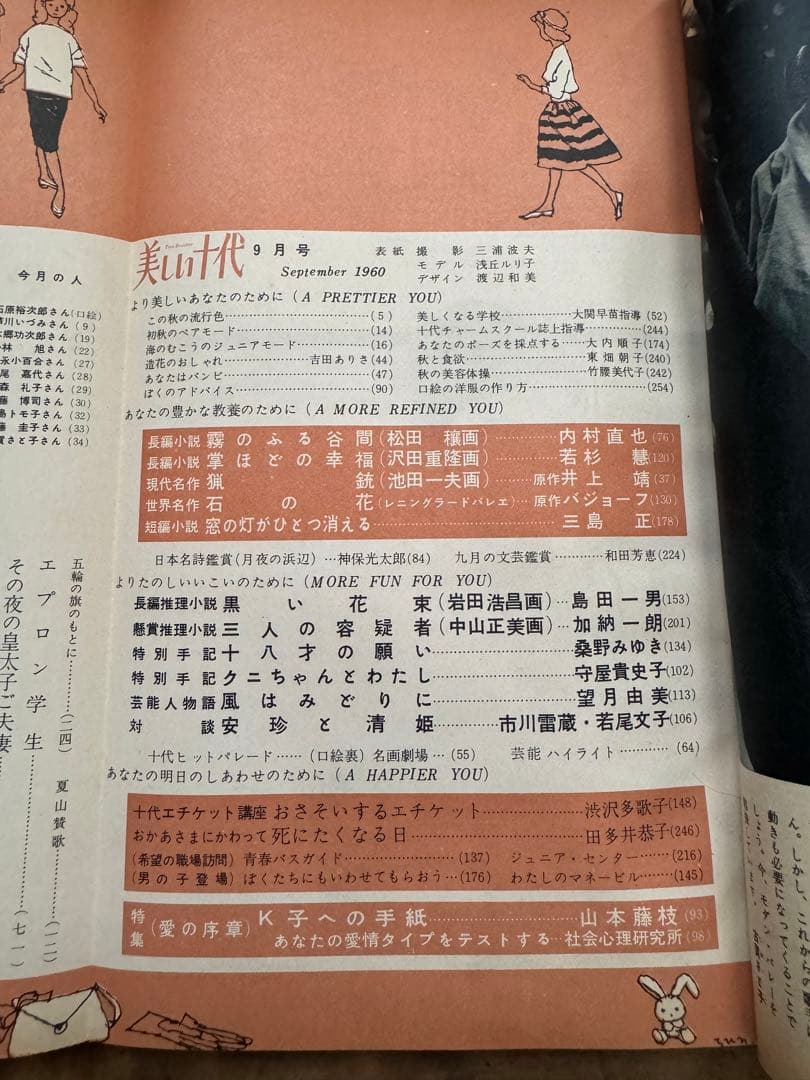 美しい十代 9月号
September 1960
表紙 撮影 三浦波夫
モデル 浅丘ルリ子
デザイン 渡辺和美
より美しいあなたのために (A PRETTIER YOU)
この秋の流行色……(5)
初秋のペアモード……(14)
海のむこうのジュニアモード……(16)
造花のおしゃれ……吉田ありさ(44)
あなたはバンビ……(47)
ぼくのアドバイス……(90)
美しくなる学校……大関早苗指導(52)
十代チャームスクール誌上指導……(244)
あなたのポーズを採点する……大内順子(174)
秋と食欲……東畑朝子(240)
秋の美容体操……竹腰美代子(242)
口絵の洋服の作り方……(254)
あなたの豊かな教養のために (A MORE REFINED YOU)
長編小説 霧のふる谷間(松田穰画)……内村直也(76)
長編小説 掌ほどの幸福(沢田重隆画)……若杉慧(120)
現代名作 猟銃(池田一夫画)……原作 井上靖(37)
世界名作 石の花(レニングラードバレエ)……原作 バジョーフ(130)
短編小説 窓の灯がひとつ消える……三島正(178)
日本名詩鑑賞(月夜の浜辺)…神保光太郎(84) 九月の文芸鑑賞……和田芳恵(224)
よりたのしいいこいのために (MORE FUN FOR YOU)
長編推理小説 黒い花束(岩田浩昌画)…島田一男(153)
懸賞推理小説 三人の容疑者(中山正美画)…加納一朗(201)
特別手記 十八才の願い……桑野みゆき(134)
特別手記 クニちゃんとわたし……守屋貴史子(102)
芸能人物語 風はみどりに……望月由美(113)
対談 安珍と清姫……市川雷蔵・若尾文子(106)
十代ヒットパレード……(口絵裏) 名画劇場…(55) 芸能ハイライト……(64)
あなたの明日のしあわせのために (A HAPPIER YOU)
十代エチケット講座 おさそいするエチケット……渋沢多歌子(148)
おかあさまにかわって 死にたくなる日……田多井恭子(246)
(希望の職場訪問) 青春バスガイド……(137) ジュニア・センター……(216)
(男の子登場) ぼくたちにもいわせてもらおう…(176) わたしのマネービル……(145)
特集 (愛の序章) K子への手紙……山本藤枝(93)
あなたの愛情タイプをテストする…社会心理研究所(98)
今月の人
石原裕次郎さん(口絵)
川いづみさん(9)
郷功次郎さん(19)
林 旭さん(22)
永小百合さん(27)
尾 嘉代さん(28)
森 礼子さん(29)
藤 博司さん(30)
島トモ子さん(32)
藤 圭子さん(33)
賀さと子さん(34)
五輪の旗のもとに……(二四)
夏山賛歌……(一二)
エプロン学生……(七一)
その夜の皇太子ご夫妻……
ん。しかし、これからの
動きも必要になってくることで
しょう。今、モダン・バレーを